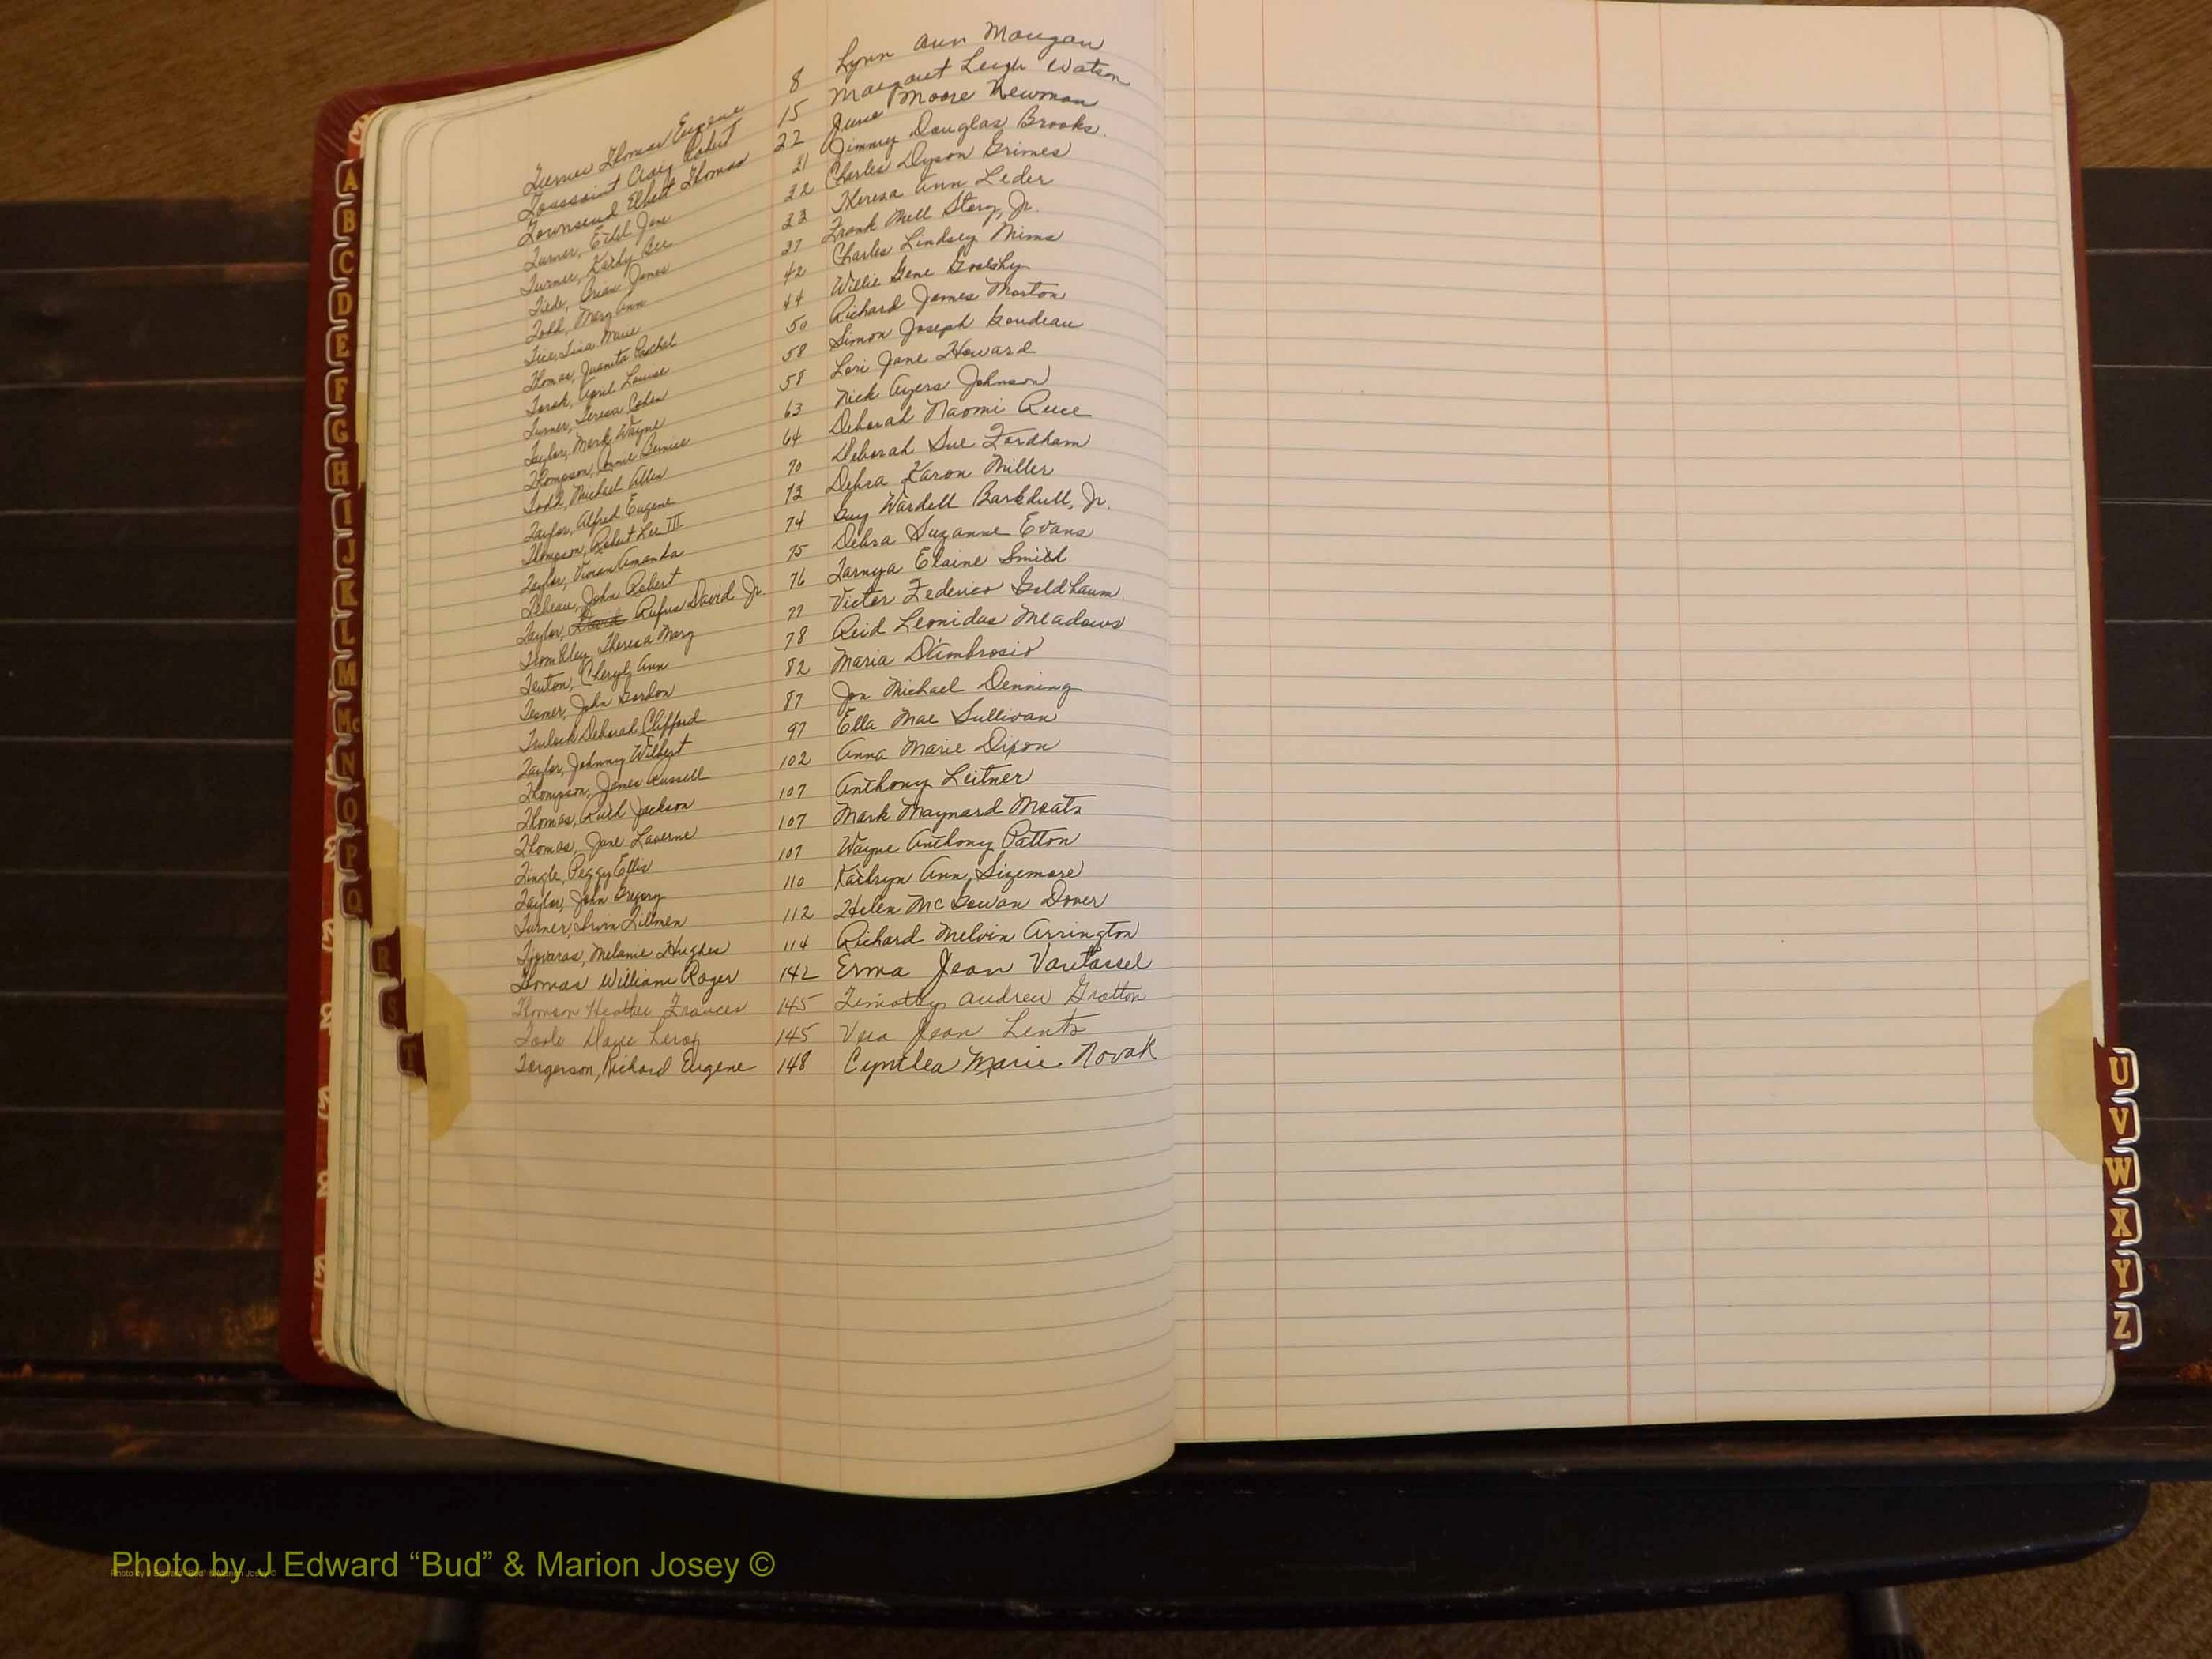 Turner Thomas Eugene 8 Lynn Ann Mangan
Toussaint Craig Robert 15 Margaret Leigh Watson
Townsend Elbert Thomas 22 June Moore Newman
Turner, Ethel Jane 31 Jimmy Douglas Brooks
Turner, Kathy Bee 32 Charles Dyson Grimes
James 33 Theresa Ann Leder
Todd, Mary Ann 37 Frank Mell Story, Jr.
Tice, Lisa Marie 42 Charles Lindsey Mims
Thomas, Juanita Paschal 44 Willie Gene Goolsby
Torok, April Louise 50 Richard James Morton
Turner, Teresa Cohen 58 Simon Joseph Goudeau
Taylor, Mark Wayne 58 Lori Jane Howard
Thompson, Annie Bernice 63 Nick Ayers Johnson
Todd, Michael Allen 64 Deborah Naomi Reece
Taylor, Alfred Eugene 70 Deborah Sue Fordham
Thompson, Robert Lee III 73 Debra Karon Miller
Taylor, Vivian Amanda 74 Guy Wardell Barkdull, Jr.
Tebeau, John Robert 75 Debra Suzanne Evans
Taylor, David Rufus David Jr. 76 Tarnya Elaine Smith
Trombley, Theresa Mary 77 Victor Federico Goldbaum
Teuton, Cheryl Ann 78 Reid Leonidas Meadows
Tesmer, John Gordon 82 Maria D'Ambrosio
Deborah Clifford 87 Jon Michael Denning
Taylor, Johnny Wilbert 97 Ella Mae Sullivan
Thompson, James Russell 102 Anna Marie Dixon
Thomas, Ruth Jackson 107 Anthony Leitner
Thomas, Jane Laverne 107 Mark Maynard Moats
Tingle, Peggy Ellis 107 Wayne Anthony Patton
Taylor, John Gregory 110 Kathryn Ann Sizemore
Turner, Irvin Tillmen 112 Helen McGowan Dover
Tjovaras, Melanie Hughes 114 Richard Melvin Arrington
Thomas William Roger 142 Erma Jean Vantassel
Thomson Heather Frances 145 Timothy Andrew Gratton
Toole Dave Leroy 145 Vera Jean Lentz
Torgerson, Richard Eugene 148 Cynthea Marie Novak
A
B
C
D
E
F
G
H
I
J
K
L
M
Mc
N
O
P
Q
R
S
T
U
V
W
X
Y
Z
Photo by J Edward “Bud” & Marion Josey ©
Photo by J Edward “Bud” & Marion Josey ©